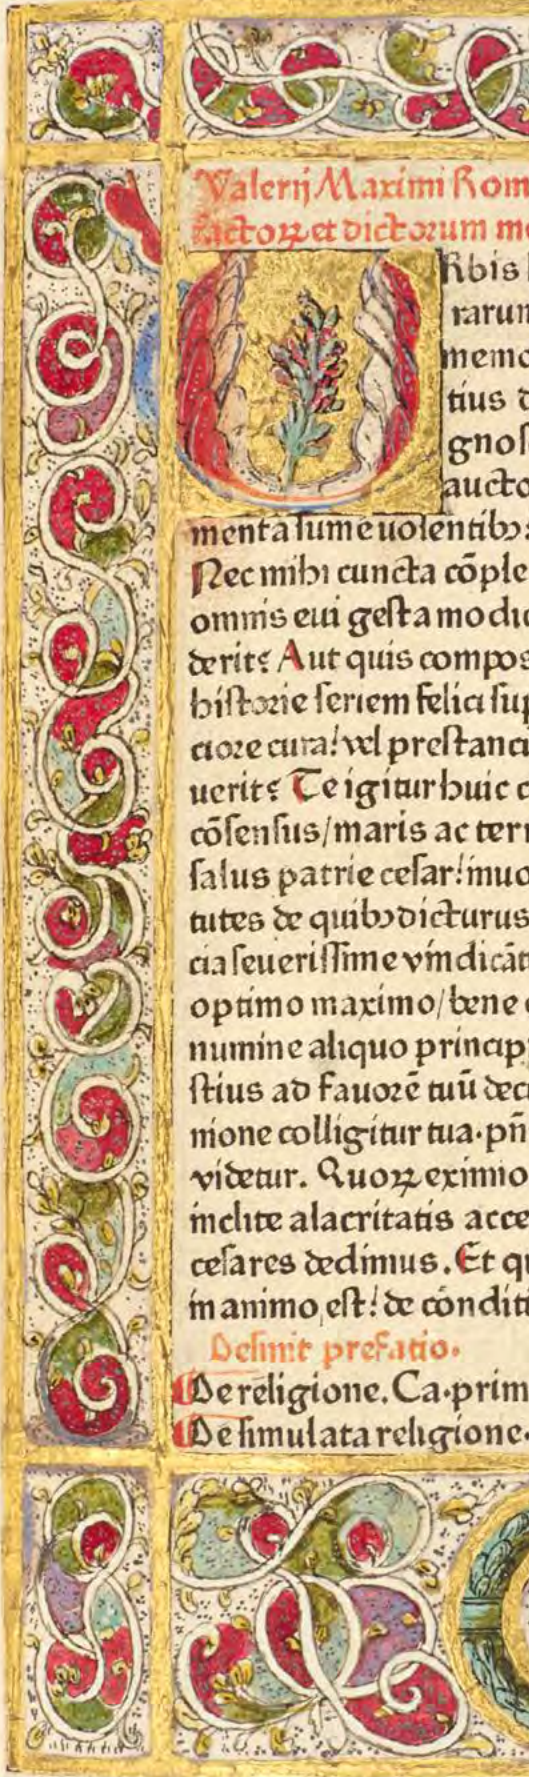 Valerij Maximi Rom
factoꝝ et dictorum me
URbis
rarum
memo
tius d
gnos
aucto
menta sume volentibꝰ
Nec mihi cuncta cōple
omnis eui gesta modic
derit? Aut quis compos
historie seriem felici sup
ciore cura! vel prestanci
uerit? Te igitur huic c
cōsensus/maris ac terr
salus patrie cesar! inuo
tutes de quibꝰ dicturus
cia seuerissime vindicāt
optimo maximo/bene
numine aliquo princip
stius ad fauorē tuū deci
nione colligitur tua·pn̄
videtur. Quoꝝ eximio
inclite alacritatis acce
cesares dedimus. Et qu
in animo est! de conditi
Desinit prefatio.
De religione. Ca·prim
De simulata religione·